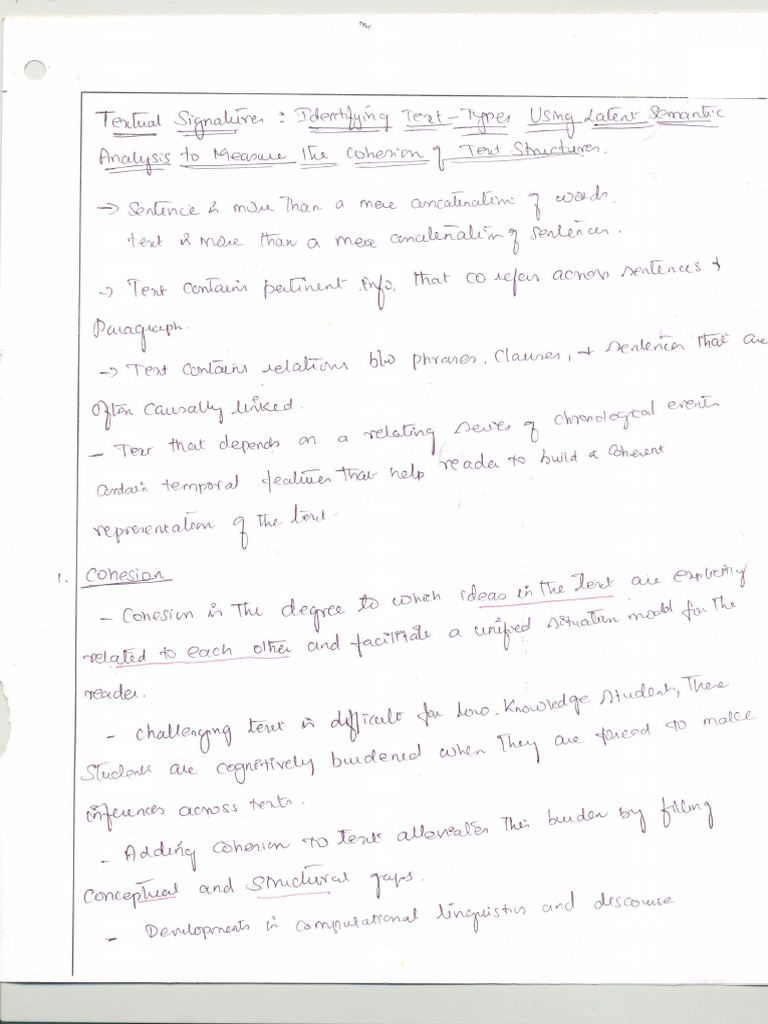 Textual Signatures : Identifying Text-Types Using Latent Semantic
Analysis to Measure the Cohesion of Text Structures.
→ Sentence is more than a mere concatenation of words.
text is more than a mere concatenation of sentences.
→ Text contains pertinent info. that co refers across sentences &
Paragraph.
→ Text contains relations b/w phrases, clauses, & sentences that are
often causally linked.
- Text that depends on a relating series of chronological events
contain temporal features that help reader to build a coherent
representation of the text.
1. Cohesion
- Cohesion is the degree to which ideas in the text are explicitly
related to each other and facilitate a unified situation model for the
reader.
- Challenging text is difficult for low-knowledge student, These
Students are cognitively burdened when they are forced to make
inferences across texts.
- Adding cohesion to text alleviates this burden by filling
conceptual and structural gaps.
- Developments in computational linguistics and discourse